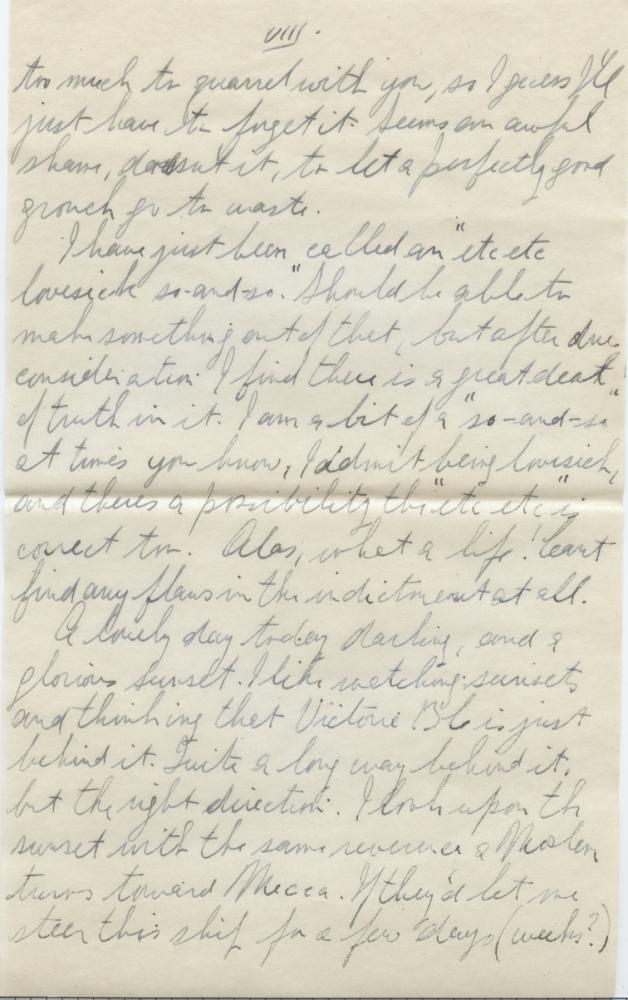 VIII.
too much to quarrel with you, so I guess I'll
just have to forget it. Seems an awful
shame, doesn't it, to let a perfectly good
grouch go to waste.
I have just been called an "etc etc
lovesick so-and-so." Should be able to
make something out of that, but after due
consideration I find there is a great deal
of truth in it. I am a bit of a "so-and-so"
at times you know, I admit being lovesick,
and theres a possibility the "etc etc" is
correct too. Alas, what a life! Can't
find any flaws in the indictment at all.
A lovely day today darling, and a
glorious sunset. I like watching sunsets
and thinking that Victoria B.C. is just
behind it. Quite a long way behind it,
but the right direction. I look upon the
sunset with the same reverence a Moslem
turns toward Mecca. If they'd let me
steer this ship for a few days (weeks?)